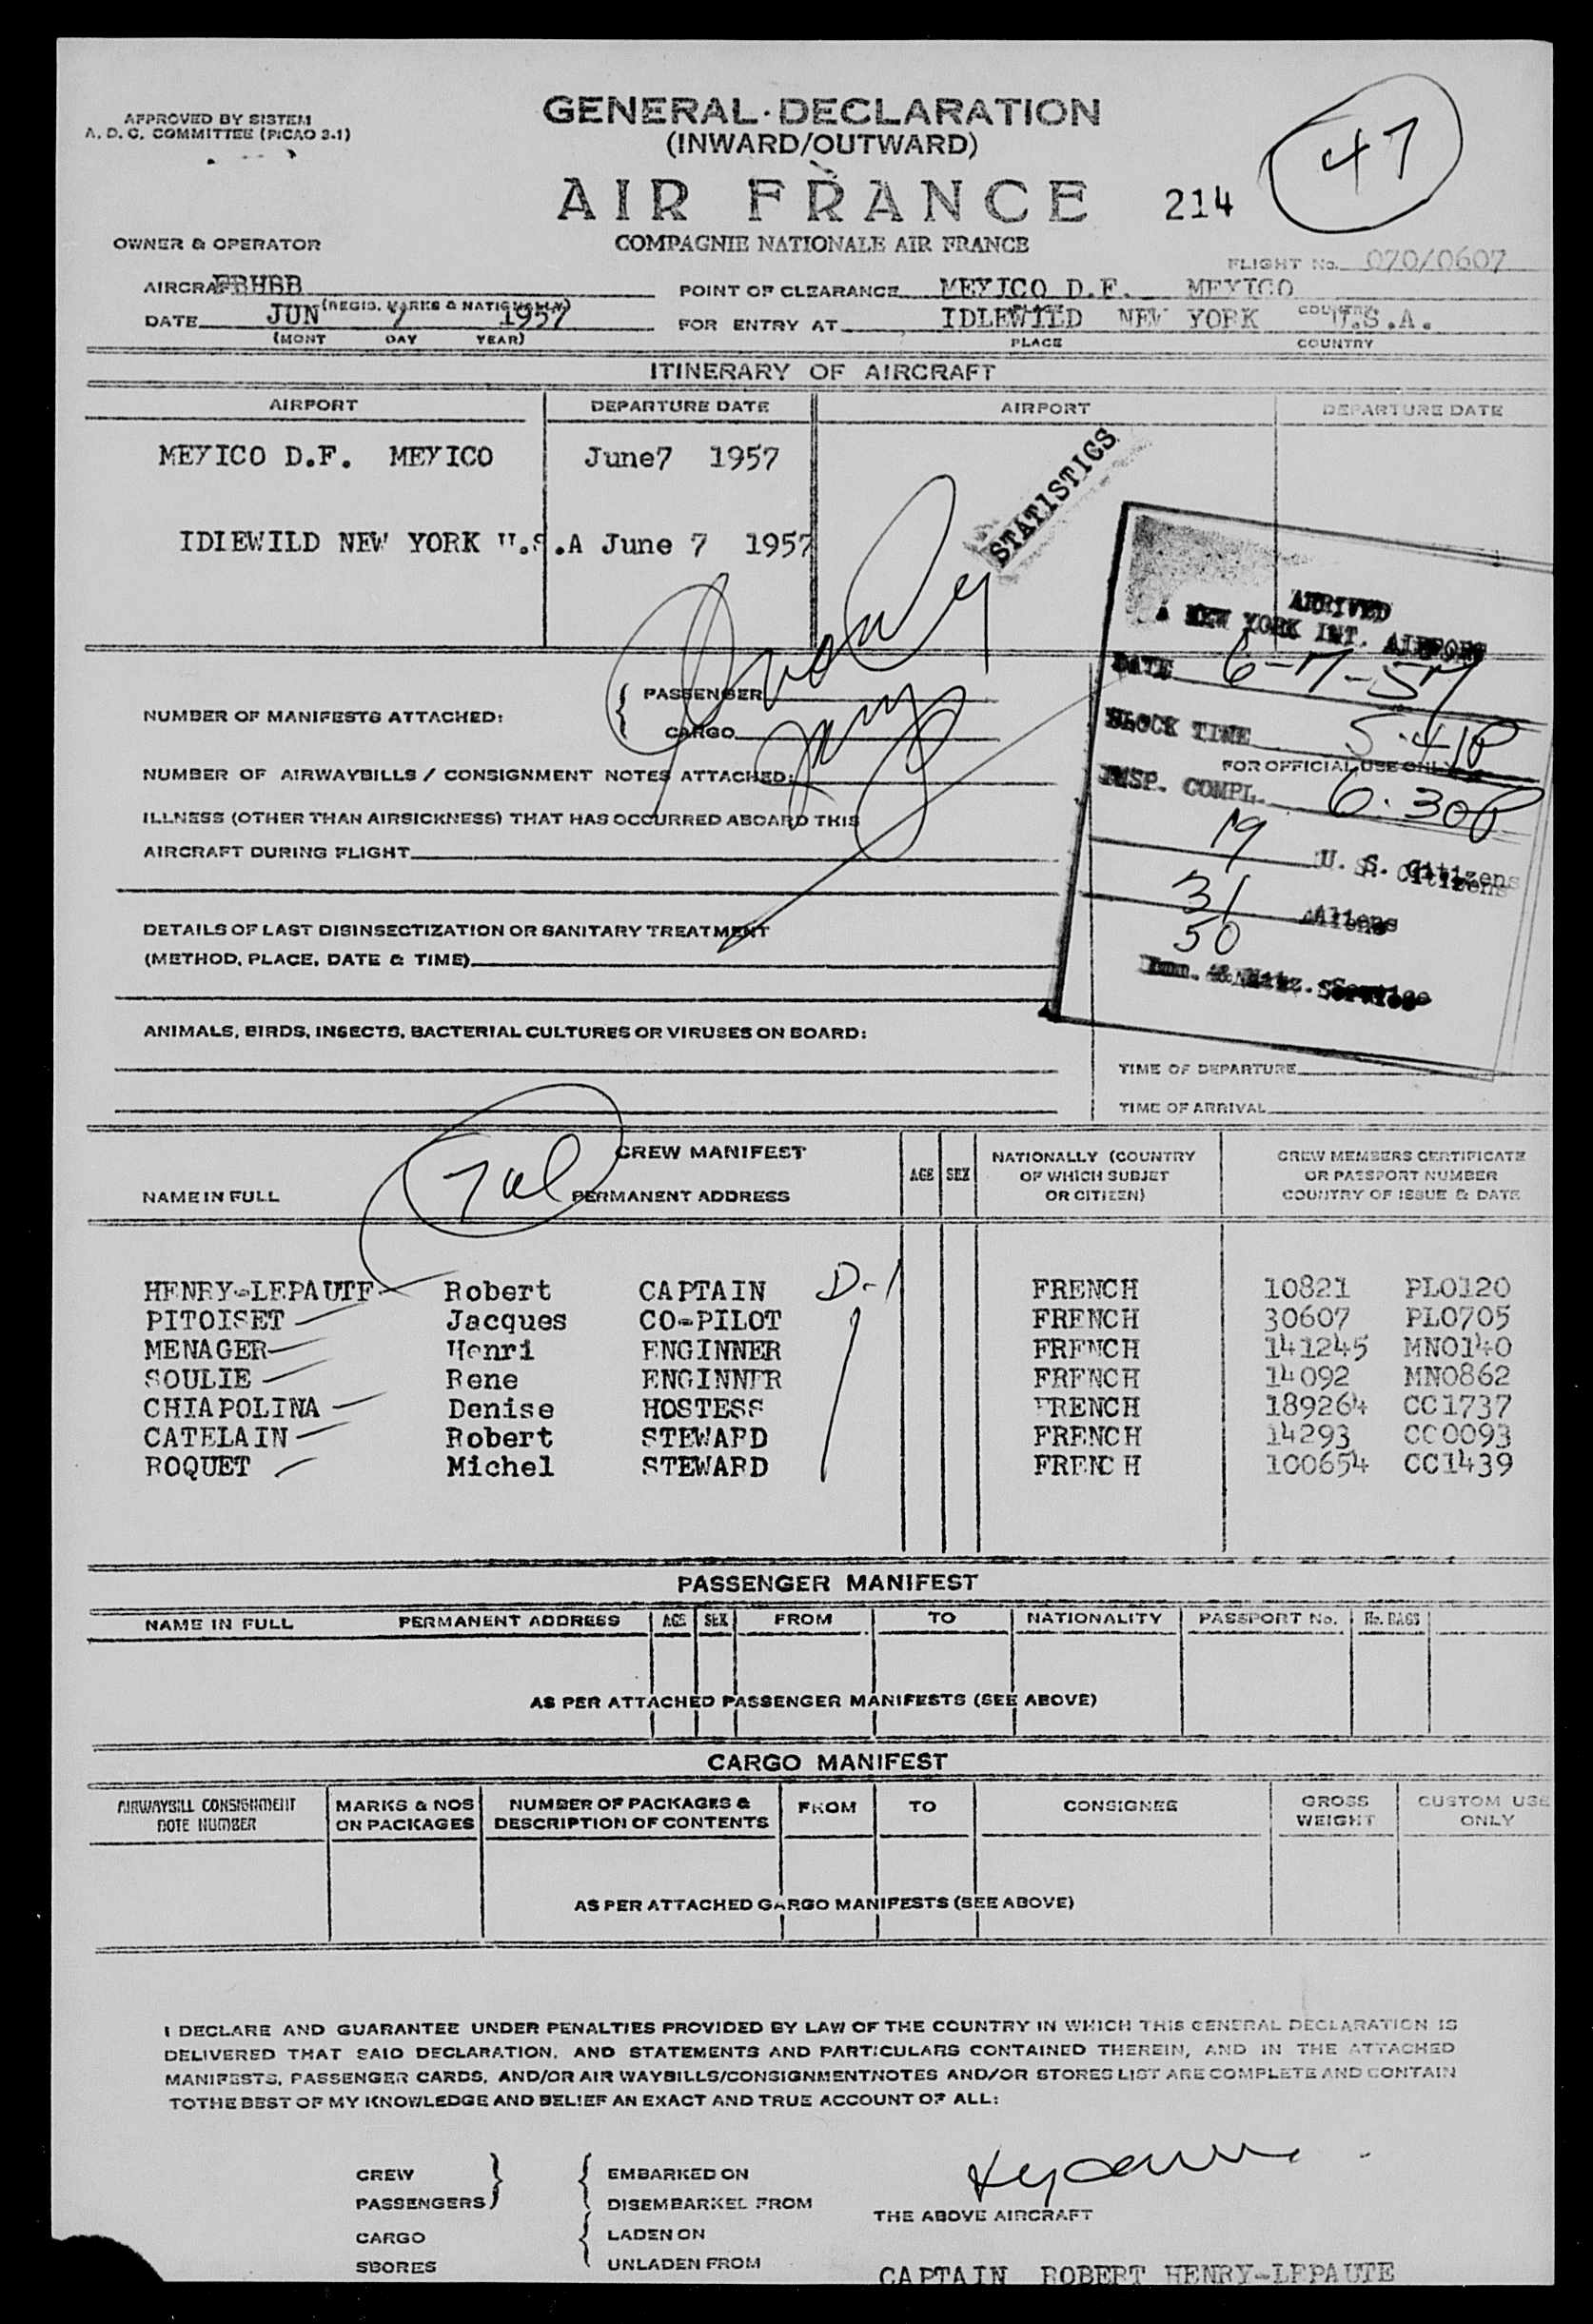 APPROVED BY SISTEM
A. D. C. COMMITTEE (PICAO 3-1)
GENERAL·DECLARATION
(INWARD/OUTWARD)
47
AIR FRANCE
214
OWNER & OPERATOR
COMPAGNIE NATIONALE AIR FRANCE
FLIGHT No. 070/0607
AIRCRAF FBHBB
(REGIS. MARKS & NATIONALLY)
POINT OF CLEARANCE MEYICO D.F. MEYICO
COUNTRY
DATE JUN 7 1957
(MONT DAY YEAR)
FOR ENTRY AT IDLEWILD NEW YORK U.S.A.
PLACE COUNTRY
ITINERARY OF AIRCRAFT
AIRPORT DEPARTURE DATE AIRPORT DEPARTURE DATE
MEYICO D.F. MEYICO June7 1957
STATISTICS
IDIEWILD NEW YORK U.S.A June 7 1957
ARRIVED
NEW YORK INT. AIRPORT
DATE 6-7-57
BLOCK TIME 5.41P
FOR OFFICIAL USE ONLY
INSP. COMPL. 6.30P
19 U. S. Citizens
31 Aliens
50
Imm. & Natz. Service
NUMBER OF MANIFESTS ATTACHED:
PASSENGER
CARGO
NUMBER OF AIRWAYBILLS / CONSIGNMENT NOTES ATTACHED:
ILLNESS (OTHER THAN AIRSICKNESS) THAT HAS OCCURRED ABOARD THIS
AIRCRAFT DURING FLIGHT
DETAILS OF LAST DISINSECTIZATION OR SANITARY TREATMENT
(METHOD, PLACE, DATE & TIME)
ANIMALS, BIRDS, INSECTS, BACTERIAL CULTURES OR VIRUSES ON BOARD:
TIME OF DEPARTURE
TIME OF ARRIVAL
CREW MANIFEST
NAME IN FULL PERMANENT ADDRESS AGE SEX
NATIONALLY (COUNTRY
OF WHICH SUBJET
OR CITIZEN)
CREW MEMBERS CERTIFICATE
OR PASSPORT NUMBER
COUNTRY OF ISSUE & DATE
HENRY-LEPAUTE Robert CAPTAIN D-1 FRENCH 10821 PLO120
PITOISET Jacques CO-PILOT FRENCH 30607 PLO705
MENAGER Henri ENGINNER FRENCH 141245 MNO140
SOULIE Rene ENGINNER FRENCH 14092 MNO862
CHIAPOLINA Denise HOSTESS FRENCH 189264 CC1737
CATELAIN Robert STEWARD FRENCH 14293 CC0093
ROQUET Michel STEWARD FRENC H 100654 CC1439
PASSENGER MANIFEST
NAME IN FULL PERMANENT ADDRESS AGE SEX FROM TO NATIONALITY PASSPORT No. No. BAGS
AS PER ATTACHED PASSENGER MANIFESTS (SEE ABOVE)
CARGO MANIFEST
AIRWAYBILL CONSIGNMENT
NOTE NUMBER
MARKS & NOS
ON PACKAGES
NUMBER OF PACKAGES &
DESCRIPTION OF CONTENTS
FROM TO CONSIGNEE
GROSS
WEIGHT
CUSTOM USE
ONLY
AS PER ATTACHED CARGO MANIFESTS (SEE ABOVE)
I DECLARE AND GUARANTEE UNDER PENALTIES PROVIDED BY LAW OF THE COUNTRY IN WHICH THIS GENERAL DECLARATION IS
DELIVERED THAT SAID DECLARATION, AND STATEMENTS AND PARTICULARS CONTAINED THEREIN, AND IN THE ATTACHED
MANIFESTS, PASSENGER CARDS, AND/OR AIR WAYBILLS/CONSIGNMENTNOTES AND/OR STORES LIST ARE COMPLETE AND CONTAIN
TOTHE BEST OF MY KNOWLEDGE AND BELIEF AN EXACT AND TRUE ACCOUNT OF ALL:
CREW
PASSENGERS
EMBARKED ON
DISEMBARKEL FROM
THE ABOVE AIRCRAFT
CARGO
SBORES
LADEN ON
UNLADEN FROM
CAPTAIN ROBERT HENRY-LEPAUTE